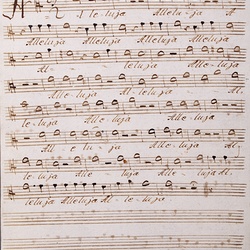 A lleluja Alleluja A
Alleluja Alleluja Alleluja Alleluja
Al- leluja Al
leluja Alleluja Al- leluja
Al- leluja Alle- luja
Al- le- lu- ja Alle-
leluja Alle luja Alleluja Al-
le- luja Alleluja Al- leluja.